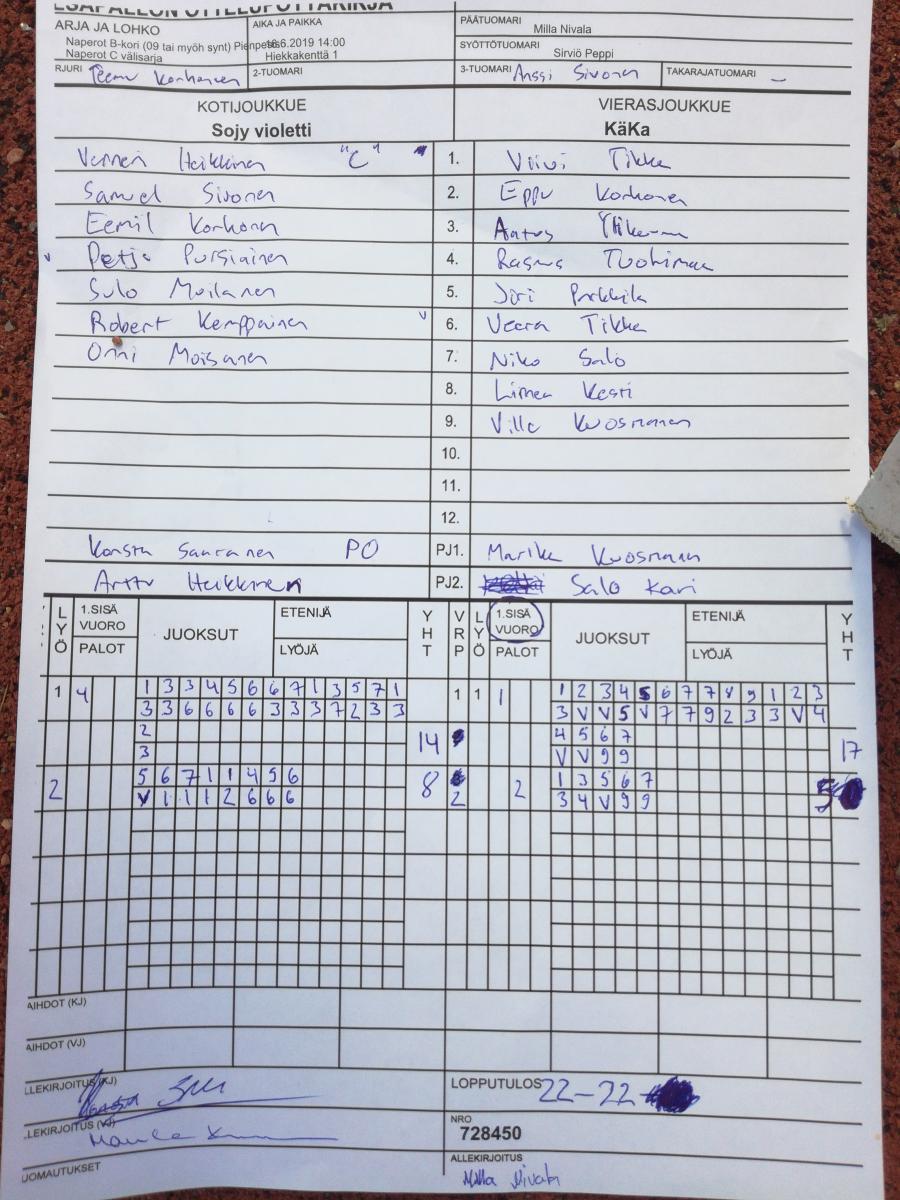 ESÄPALLON OTTELUPÖYTÄKIRJA
ARJA JA LOHKO
Naperot B-kori (09 tai myöh synt) Pienpesis
Naperot C välisarja
AIKA JA PAIKKA
16.6.2019 14:00
Hiekkakenttä 1
PÄÄTUOMARI
Milla Nivala
SYÖTTÖTUOMARI
Sirviö Peppi
RJURI Teemu Korhonen
2-TUOMARI
3-TUOMARI Anssi Sivonen
TAKARAJATUOMARI –
KOTIJOUKKUE VIERASJOUKKUE
Sojy violetti KäKa
Verneri Heikkinen "C" 1. Viivi Tikka
Samuel Sivonen 2. Eppu Korhonen
Eemil Korhonen 3. Aatos
v Petja Pursiainen 4. Rasmus
Sulo Moilanen 5. Joni Parkkila
Robert Kemppainen v 6. Veera Tikka
Onni Moisanen 7. Niko Salo
8. Linnea Kesti
9. Ville Kuosmanen
10.
11.
12.
Konsta Saaranen PO PJ1. Marika Kuosmanen
Arttu Heikkinen PJ2. Salo Kari
LYÖ 1.SISÄ VUORO PALOT JUOKSUT ETENIJÄ LYÖJÄ YHT VRP LYÖ 1.SISÄ VUORO PALOT JUOKSUT ETENIJÄ LYÖJÄ YHT
1 4 1 3 3 4 5 6 6 7 1 3 5 7 1 1 1 1 1 2 3 4 5 6 7 7 8 9 1 2 3
3 3 6 6 6 6 3 3 3 7 2 3 3 3 V V 5 V 7 7 9 2 3 3 V 4
2 14 4 5 6 7 17
3 V V 9 9
2 5 6 7 1 1 4 5 6 8 2 1 3 5 6 7 5
V 1 1 1 2 6 6 6 2 3 4 V 9 9
AIHDOT (KJ)
AIHDOT (VJ)
LLEKIRJOITUS (KJ)
LOPPUTULOS 22-22
LLEKIRJOITUS (VJ)
NRO
728450
UOMAUTUKSET
ALLEKIRJOITUS
Milla Nivala